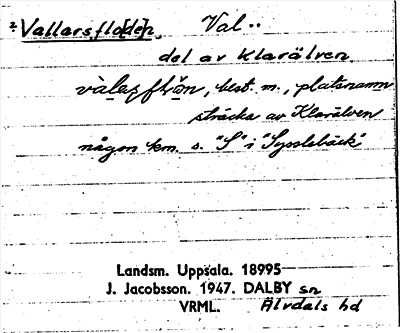 *Vallarsflo[de]n, Val..
del av Klarälven.
vàlaṣflǻn, best. m., platsnamn
sträcka av Klarälven
någon km. s. "S" i "Sysslebäck"
Landsm. Uppsala. 18995
J. Jacobsson. 1947. DALBY sn
VRML. Älvdals hd